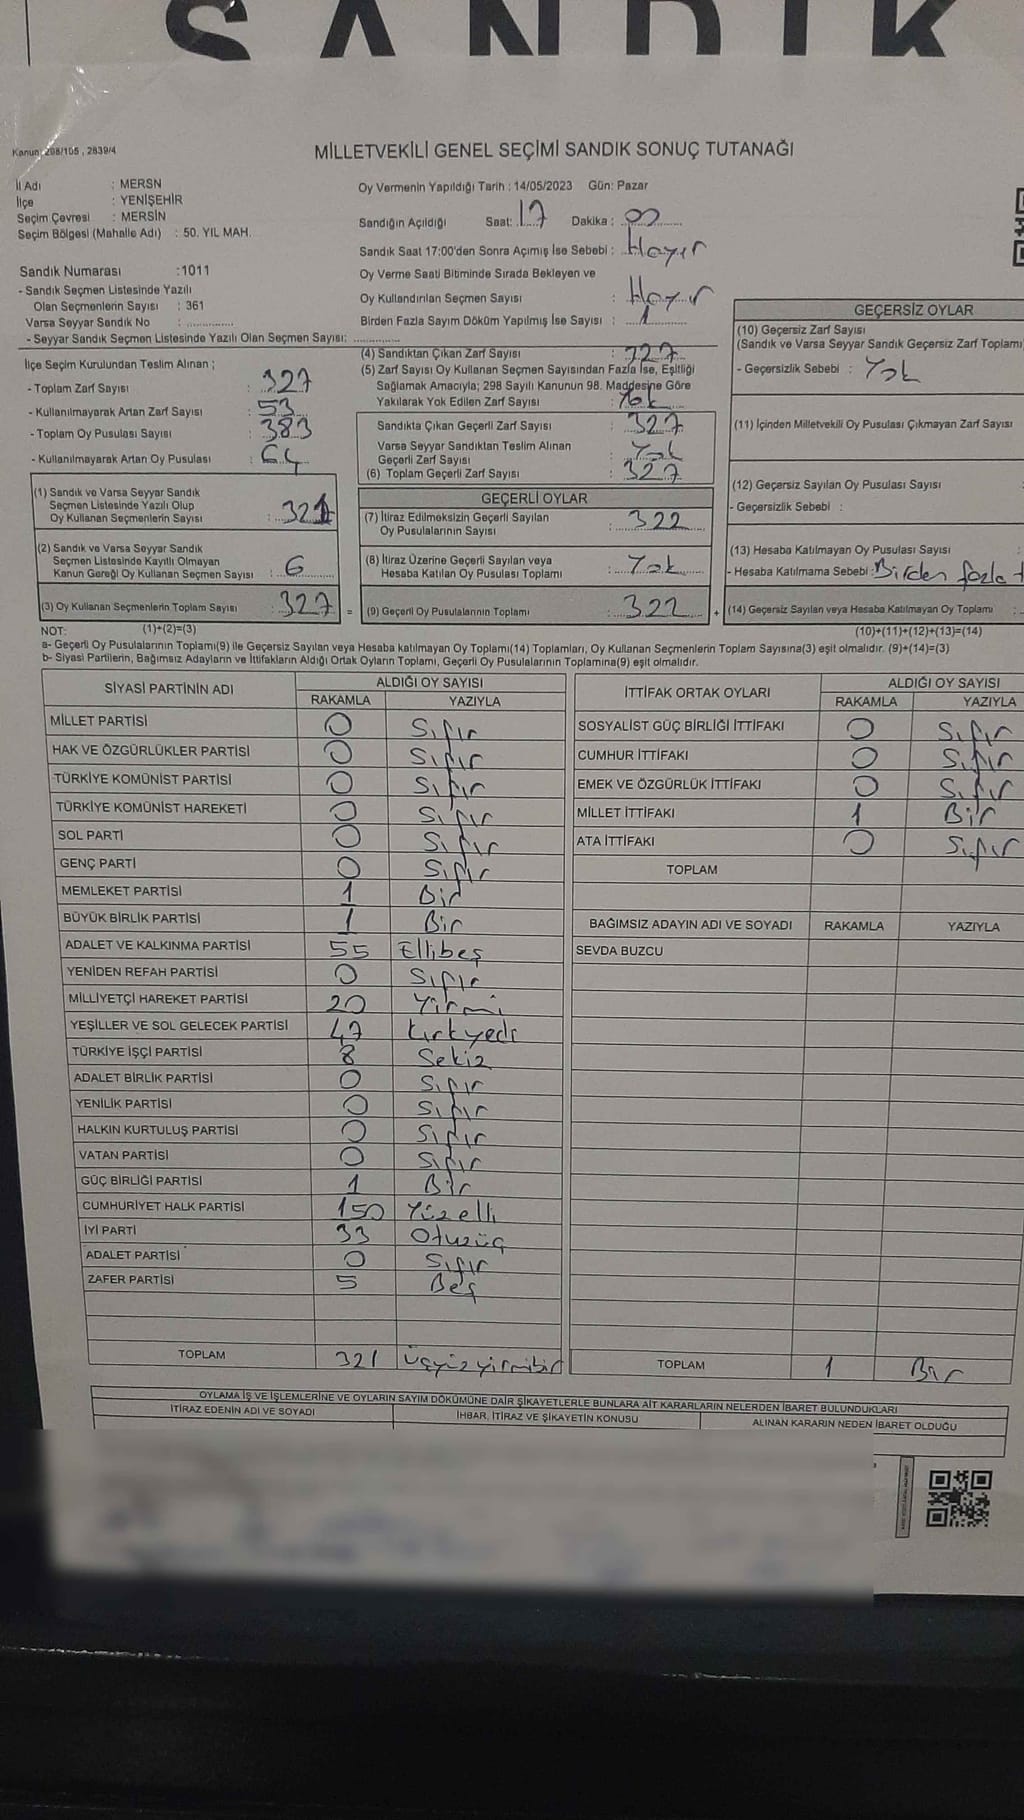 SANDIK
Kanun: 298/105 , 2839/4
MİLLETVEKİLİ GENEL SEÇİMİ SANDIK SONUÇ TUTANAĞI
İl Adı : MERSN
İlçe : YENİŞEHİR
Seçim Çevresi : MERSİN
Seçim Bölgesi (Mahalle Adı) : 50. YIL MAH.
Oy Vermenin Yapıldığı Tarih : 14/05/2023 Gün: Pazar
Sandığın Açıldığı Saat: 17 Dakika : 00
Sandık Saat 17:00'den Sonra Açımış İse Sebebi : Hayır
Oy Verme Saati Bitiminde Sırada Bekleyen ve
Oy Kullandırılan Seçmen Sayısı : Hayır
Birden Fazla Sayım Döküm Yapılmış İse Sayısı : 1
Sandık Numarası :1011
- Sandık Seçmen Listesinde Yazılı
Olan Seçmenlerin Sayısı : 361
Varsa Seyyar Sandık No :
- Seyyar Sandık Seçmen Listesinde Yazılı Olan Seçmen Sayısı:
İlçe Seçim Kurulundan Teslim Alınan ;
- Toplam Zarf Sayısı : 327
- Kullanılmayarak Artan Zarf Sayısı : 53
- Toplam Oy Pusulası Sayısı : 383
- Kullanılmayarak Artan Oy Pusulası : 64
(4) Sandıktan Çıkan Zarf Sayısı : 327
(5) Zarf Sayısı Oy Kullanan Seçmen Sayısından Fazla İse, Eşitliği
Sağlamak Amacıyla; 298 Sayılı Kanunun 98. Maddesine Göre
Yakılarak Yok Edilen Zarf Sayısı : Yok
Sandıkta Çıkan Geçerli Zarf Sayısı : 327
Varsa Seyyar Sandıktan Teslim Alınan
Geçerli Zarf Sayısı : Yok
(6) Toplam Geçerli Zarf Sayısı : 327
(1) Sandık ve Varsa Seyyar Sandık
Seçmen Listesinde Yazılı Olup
Oy Kullanan Seçmenlerin Sayısı : 321
(2) Sandık ve Varsa Seyyar Sandık
Seçmen Listesinde Kayıtlı Olmayan
Kanun Gereği Oy Kullanan Seçmen Sayısı : 6
(3) Oy Kullanan Seçmenlerin Toplam Sayısı : 327 =
GEÇERLİ OYLAR
(7) İtiraz Edilmeksizin Geçerli Sayılan
Oy Pusulalarının Sayısı : 322
(8) İtiraz Üzerine Geçerli Sayılan veya
Hesaba Katılan Oy Pusulası Toplamı : Yok
(9) Geçerli Oy Pusulalarının Toplamı : 322 +
GEÇERSİZ OYLAR
(10) Geçersiz Zarf Sayısı
(Sandık ve Varsa Seyyar Sandık Geçersiz Zarf Toplamı
- Geçersizlik Sebebi : Yok
(11) İçinden Milletvekili Oy Pusulası Çıkmayan Zarf Sayısı
(12) Geçersiz Sayılan Oy Pusulası Sayısı
- Geçersizlik Sebebi :
(13) Hesaba Katılmayan Oy Pusulası Sayısı :
- Hesaba Katılmama Sebebi : Birden fazla
(14) Geçersiz Sayılan veya Hesaba Katılmayan Oy Toplamı :
NOT: (1)+(2)=(3) (10)+(11)+(12)+(13)=(14)
a- Geçerli Oy Pusulalarının Toplamı(9) ile Geçersiz Sayılan veya Hesaba katılmayan Oy Toplamı(14) Toplamları, Oy Kullanan Seçmenlerin Toplam Sayısına(3) eşit olmalıdır. (9)+(14)=(3)
b- Siyasi Partilerin, Bağımsız Adayların ve İttifakların Aldığı Ortak Oyların Toplamı, Geçerli Oy Pusulalarının Toplamına(9) eşit olmalıdır.
SİYASİ PARTİNİN ADI ALDIĞI OY SAYISI
RAKAMLA YAZIYLA
MİLLET PARTİSİ 0 Sıfır
HAK VE ÖZGÜRLÜKLER PARTİSİ 0 Sıfır
TÜRKİYE KOMÜNİST PARTİSİ 0 Sıfır
TÜRKİYE KOMÜNİST HAREKETİ 0 Sıfır
SOL PARTİ 0 Sıfır
GENÇ PARTİ 0 Sıfır
MEMLEKET PARTİSİ 1 Bir
BÜYÜK BİRLİK PARTİSİ 1 Bir
ADALET VE KALKINMA PARTİSİ 55 Ellibeş
YENİDEN REFAH PARTİSİ 0 Sıfır
MİLLİYETÇİ HAREKET PARTİSİ 20 Yirmi
YEŞİLLER VE SOL GELECEK PARTİSİ 47 Kırkyedi
TÜRKİYE İŞÇİ PARTİSİ 8 Sekiz
ADALET BİRLİK PARTİSİ 0 Sıfır
YENİLİK PARTİSİ 0 Sıfır
HALKIN KURTULUŞ PARTİSİ 0 Sıfır
VATAN PARTİSİ 0 Sıfır
GÜÇ BİRLİĞİ PARTİSİ 1 Bir
CUMHURİYET HALK PARTİSİ 150 Yüzelli
İYİ PARTİ 33 Otuzüç
ADALET PARTİSİ 0 Sıfır
ZAFER PARTİSİ 5 Beş
TOPLAM 321 Üçyüzyirmibir
İTTİFAK ORTAK OYLARI ALDIĞI OY SAYISI
RAKAMLA YAZIYLA
SOSYALİST GÜÇ BİRLİĞİ İTTİFAKI 0 Sıfır
CUMHUR İTTİFAKI 0 Sıfır
EMEK VE ÖZGÜRLÜK İTTİFAKI 0 Sıfır
MİLLET İTTİFAKI 1 Bir
ATA İTTİFAKI 0 Sıfır
TOPLAM
BAĞIMSIZ ADAYIN ADI VE SOYADI RAKAMLA YAZIYLA
SEVDA BUZCU
TOPLAM 1 Bir
OYLAMA İŞ VE İŞLEMLERİNE VE OYLARIN SAYIM DÖKÜMÜNE DAİR ŞİKAYETLERLE BUNLARA AİT KARARLARIN NELERDEN İBARET BULUNDUKLARI
İTİRAZ EDENİN ADI VE SOYADI İHBAR, İTİRAZ VE ŞİKAYETİN KONUSU ALINAN KARARIN NEDEN İBARET OLDUĞU